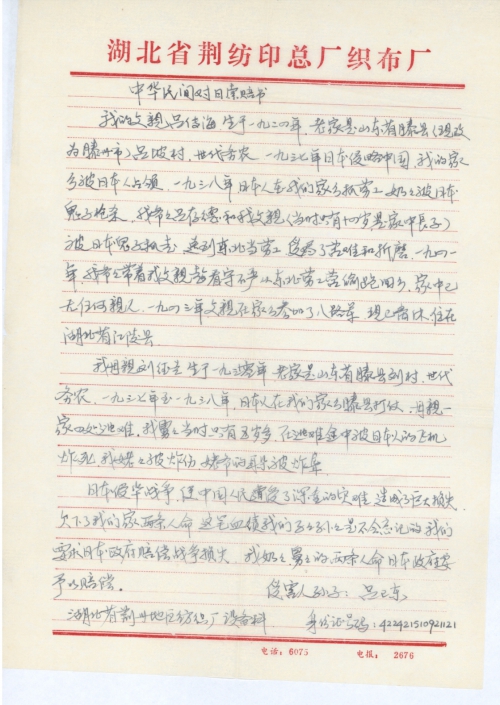 湖北省荆纺印总厂织布厂
中华民间对日索赔书
我的父亲吕信海生于一九二四年，老家是山东省滕县（现改
为滕州市）吕坡村，世代务农 一九三七年日本侵略中国，我的家
乡被日本人占领 一九三八年日本人在我们家乡抓劳工 奶々被日本
鬼子枪杀 我爷々吕存德和我父亲（当时只有十四岁是家中长子）
被日本鬼子抓去 送到东北当劳工 受尽了苦难和折磨 一九四一
年，我爷々带着我父亲 趁看守不严 从东北劳工营偷跑回乡，家中已
无任何亲人 一九四三年父亲在家乡参加了八路军 现已离休 住在
湖北省江陵县
我母亲刘 生于一九三零年 老家是山东省滕县刘村，世代
务农 一九三七年至一九三八年，日本人在我们家乡滕县打仗 母亲一
家四处逃难，我舅々当时只有五岁多 在逃难途中被日本人的飞机
炸死 我姥々被炸伤 姥爷的耳朵被炸聋
日本侵华战争，使中国人民遭受了深重的灾难 造成了巨大损失
欠下了我们家两条人命 这笔血债我们子々孙々是不会忘记的 我们
要求日本政府赔偿战争损失 我奶々、舅々的两条人命日本政府要
予以赔偿。
受害人孙子：吕卫东
湖北省荆州地区纺织厂设备科 身份证号码：422421510921121
电话：6075 电报：2676